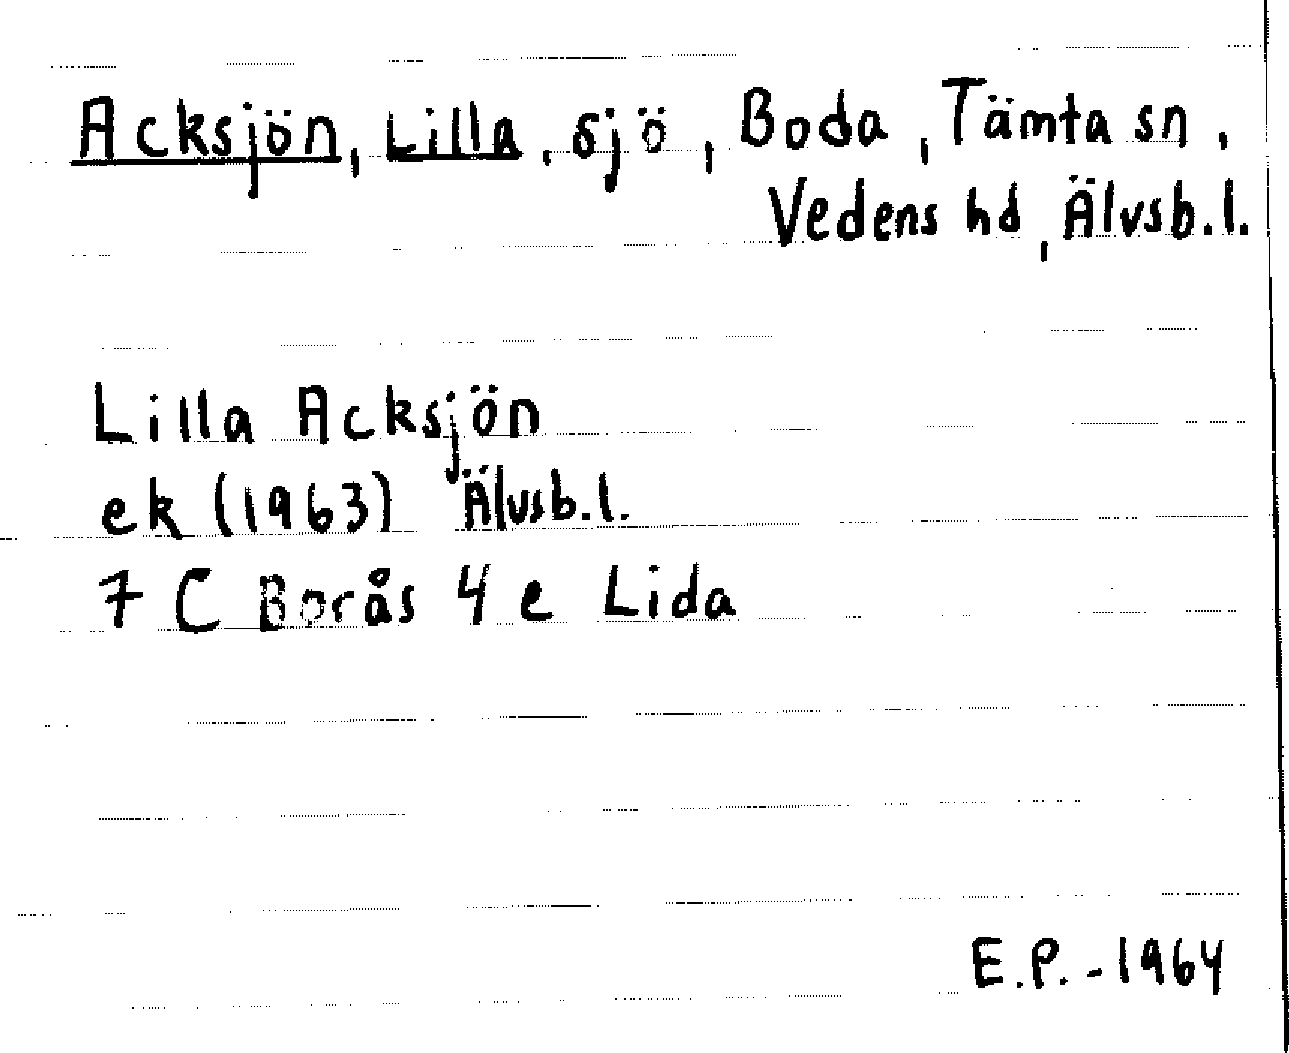 Acksjön, Lilla, sjö, Boda, Tämta sn,
Vedens hd, Älvsb.l.
Lilla Acksjön
ek (1963) Älvsb.l.
7 C Borås 4 e Lida
E.P. - 1964